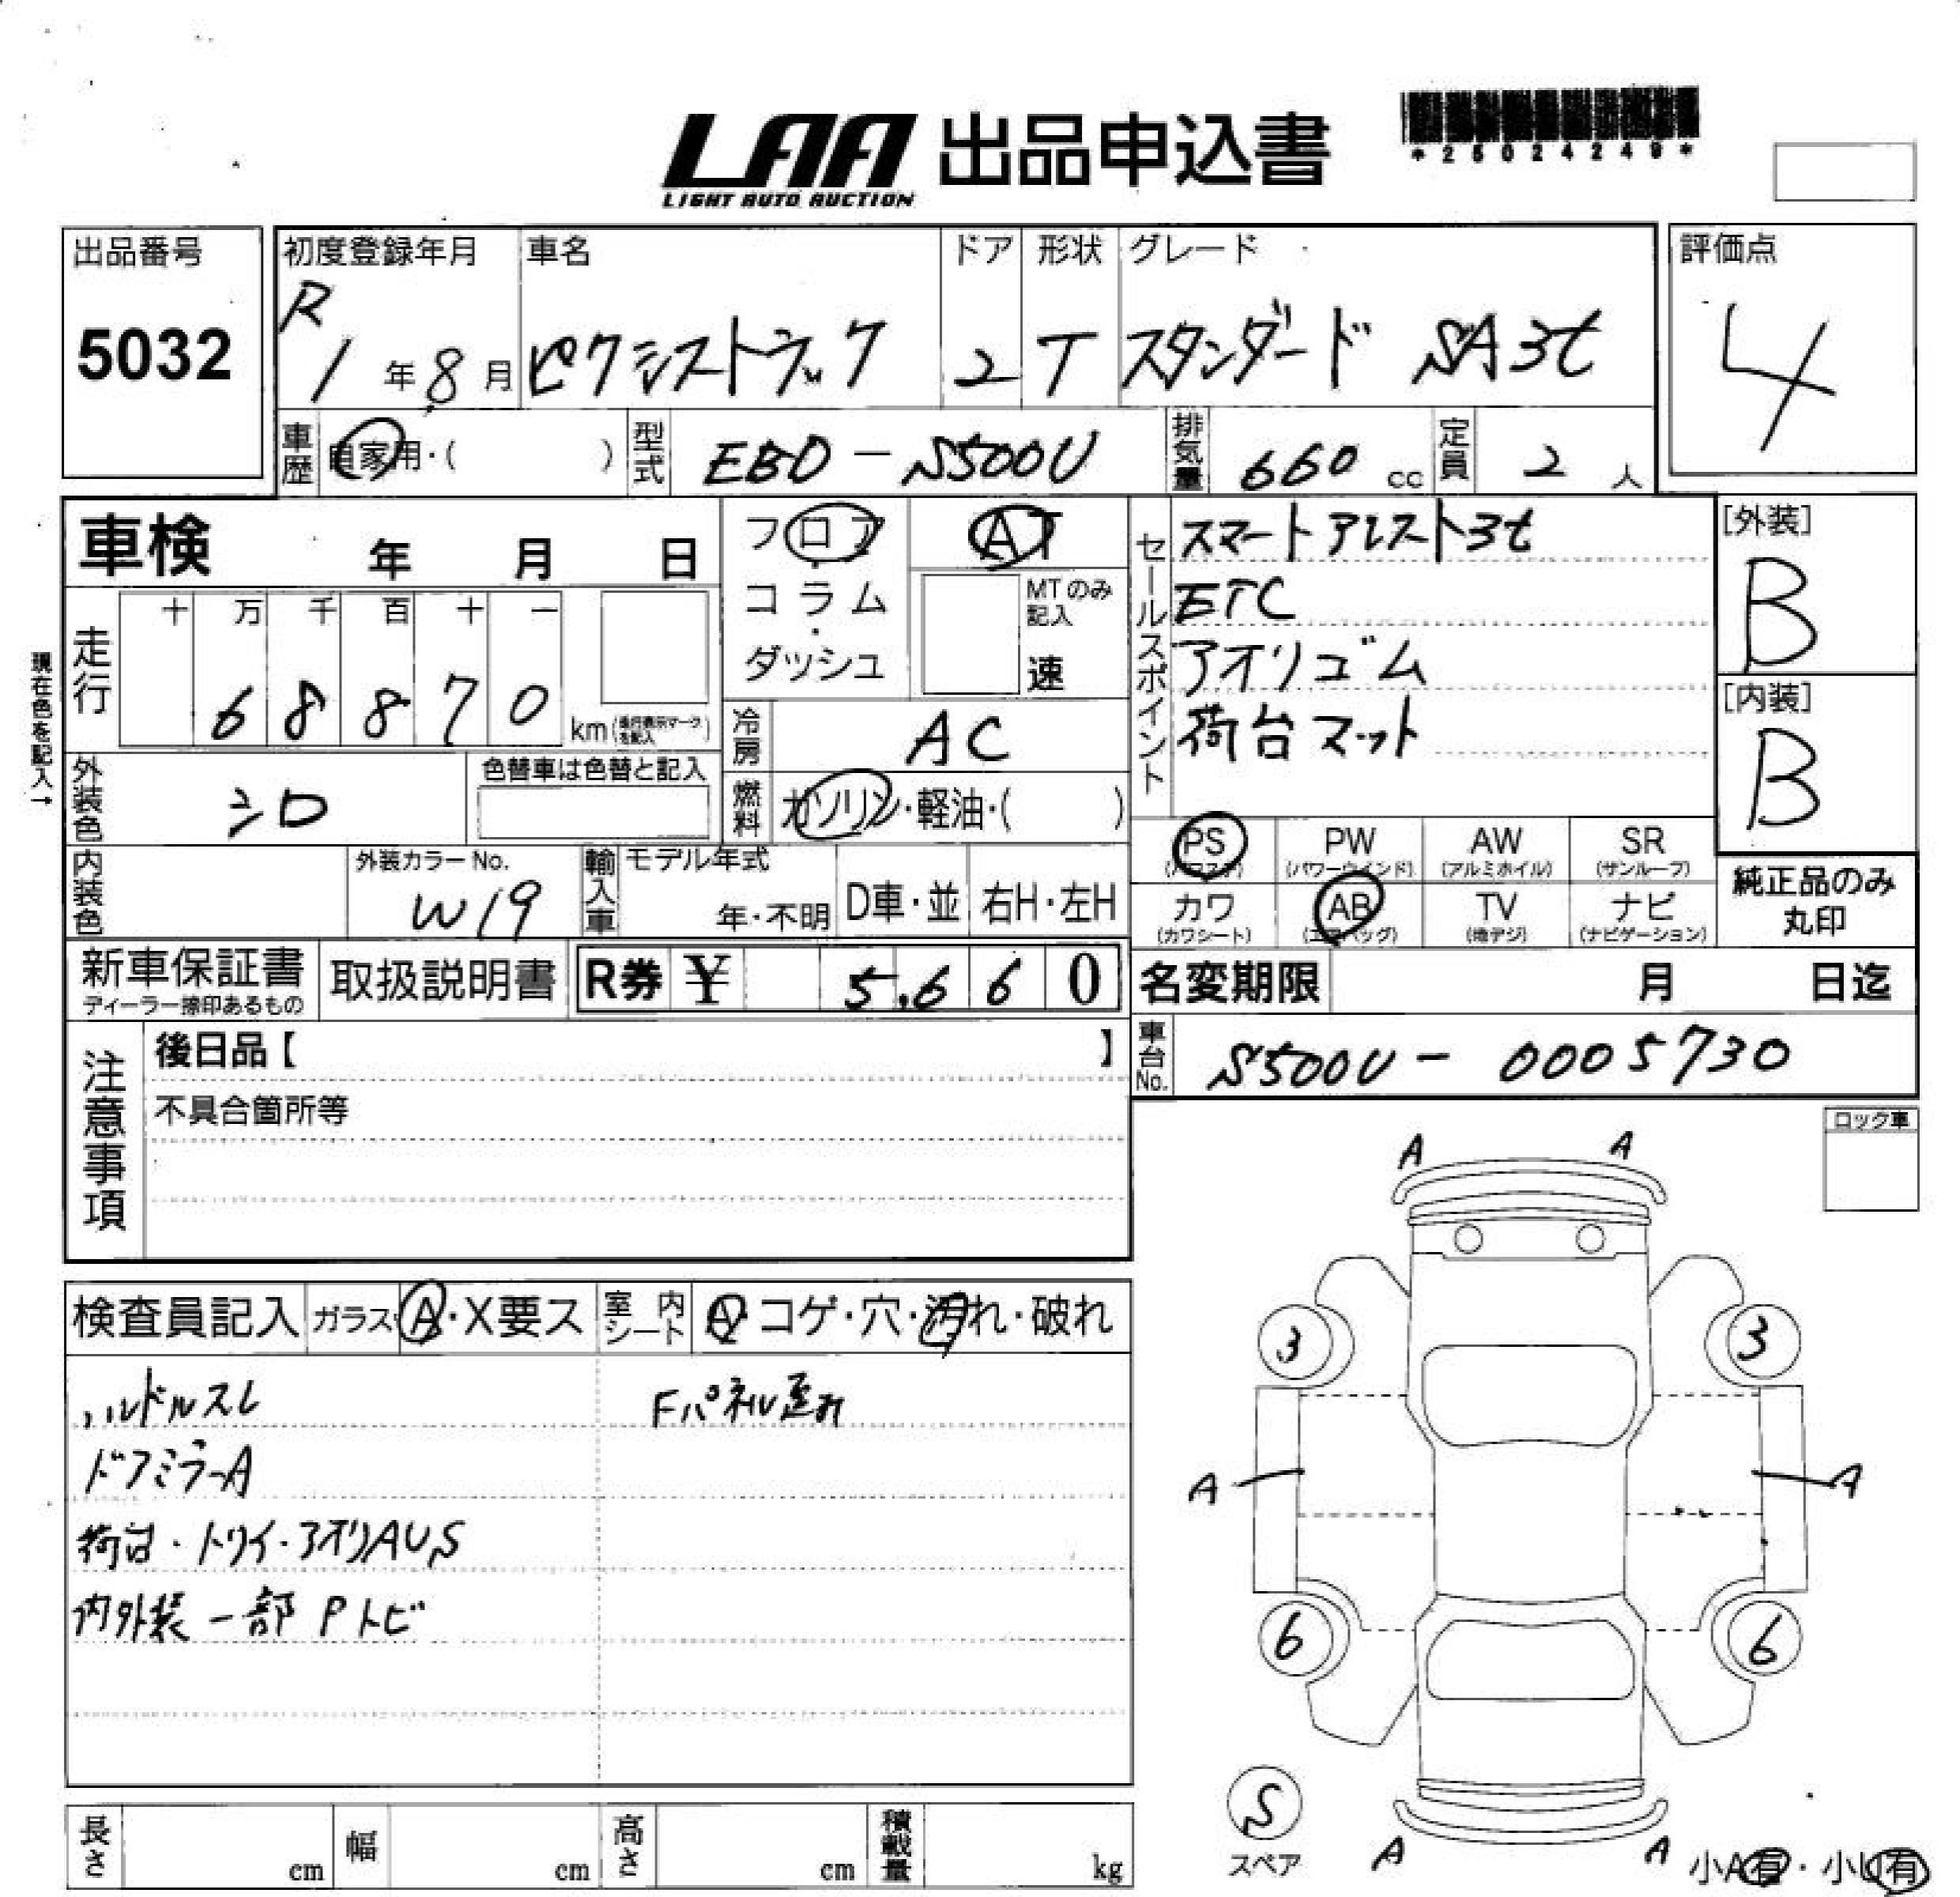 LAA 出品申込書
LIGHT AUTO AUCTION
*25024249*
出品番号
5032
初度登録年月
R
1年8月
車名
ピクシストラック
ドア
2
形状
T
グレード
スタンダード SA3t
評価点
4
車歴 自家用・( )
型式 EBD-S500U
排気量 660cc
定員 2人
車検 年 月 日
フロア
コラム
・
ダッシュ
AT
MTのみ
記入
速
セールスポイント
スマートアシスト3t
ETC
アオリゴム
荷台マット
[外装]
B
[内装]
B
現在色を記入→
走行
十 万 千 百 十 一
6 8 8 7 0
km(走行表示マークを記入)
冷房 AC
外装色 シロ
色替車は色替と記入
燃料 ガソリン・軽油・( )
PS (パワステ)
PW (パワーウインド)
AW (アルミホイル)
SR (サンルーフ)
カワ (カワシート)
AB (エアバッグ)
TV (地デジ)
ナビ (ナビゲーション)
純正品のみ
丸印
内装色
外装カラーNo.
W19
輸入車
モデル年式
年・不明
D車・並
右H・左H
新車保証書
ディーラー捺印あるもの
取扱説明書
R券 ¥ 5,660
名変期限 月 日迄
車台No. S500U-0005730
注意事項
後日品【 】
不具合箇所等
ロック車
A A
検査員記入
ガラス A・X要ス
室内シート A・コゲ・穴・汚れ・破れ
ハンドルスレ
Fパネル歪み
ドアミラーA
荷台・トリイ・アオリAUS
内外装一部Pトビ
3 3
A A
6 6
S
スペア
A A
小A有・小U有
長さ cm
幅 cm
高さ cm
積載量 kg